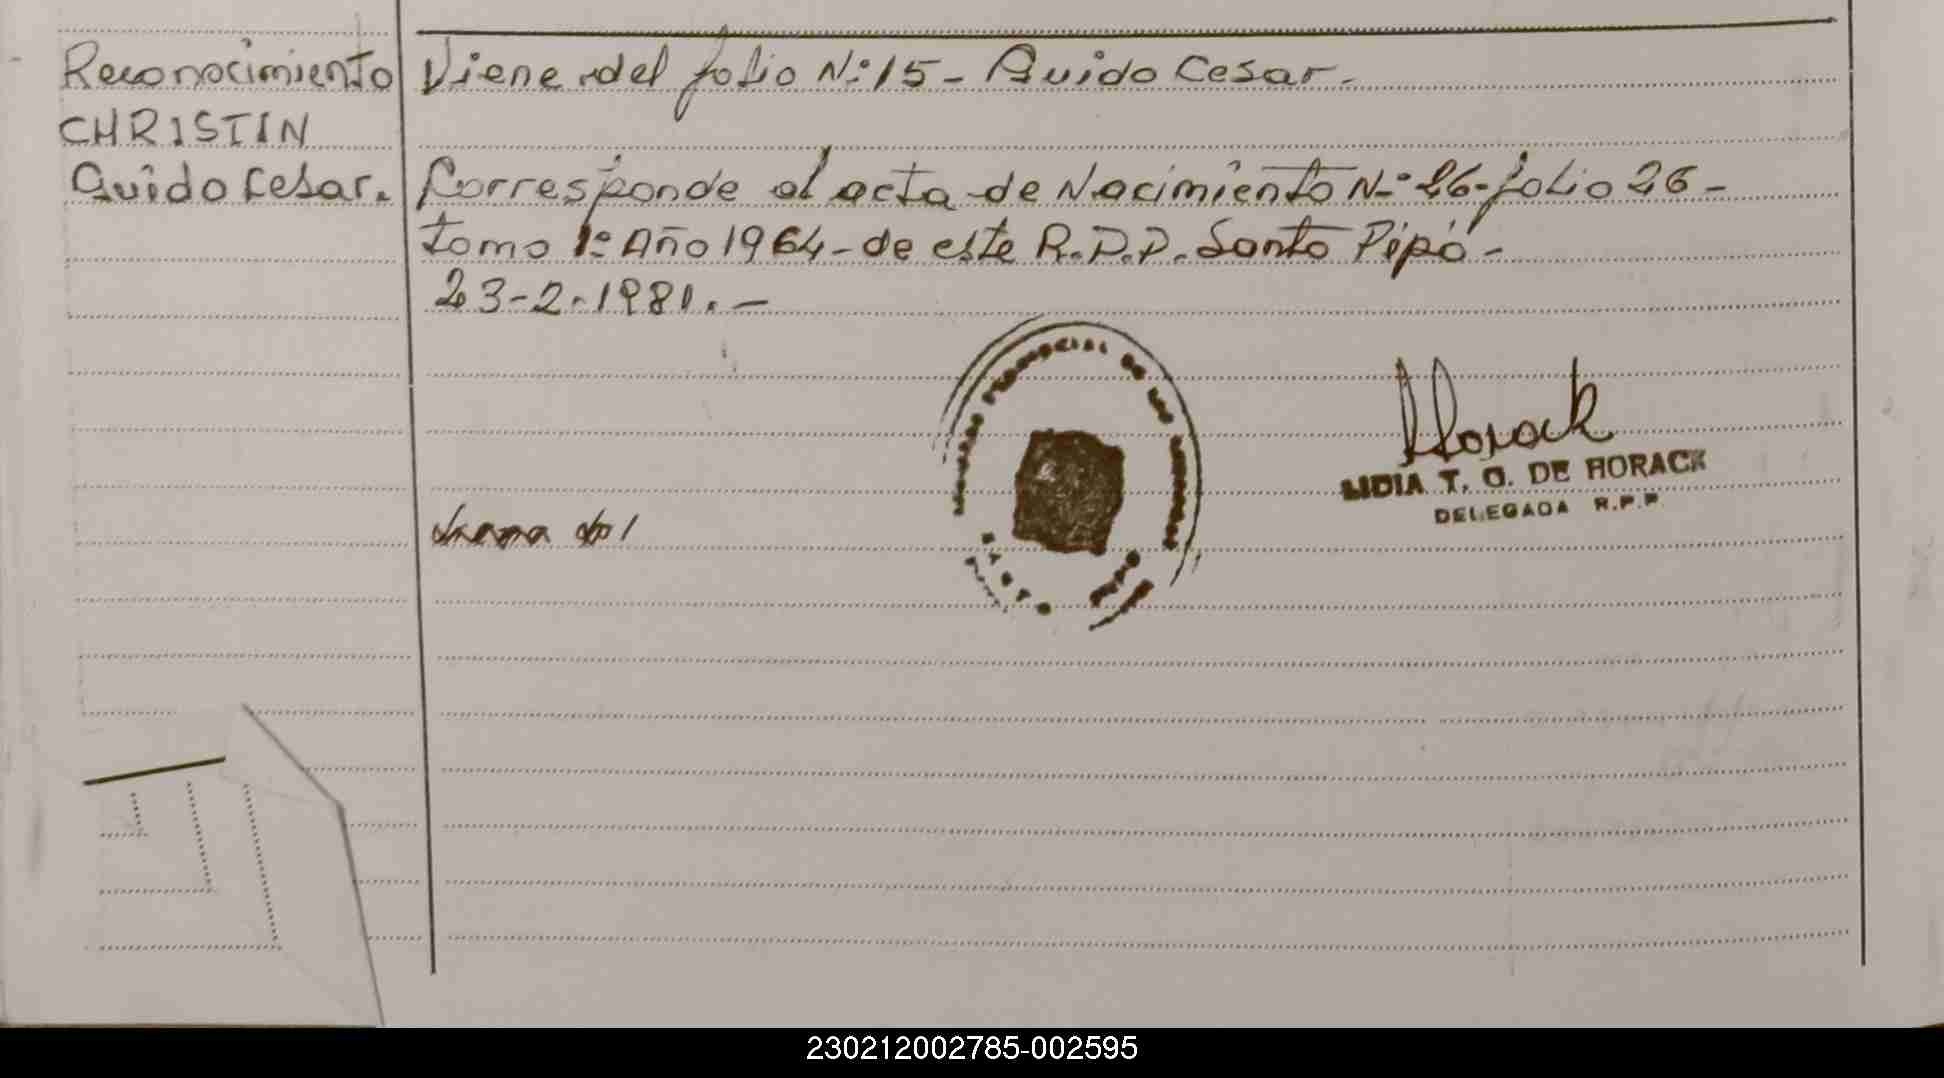 Reconocimiento
CHRISTIN
Guido Cesar.
Viene del folio N:º 15 - Guido Cesar.
Corresponde al acta de Nacimiento N-º 26- folio 26 -
tomo 1:º Año 1964 - de este R.P.P. Santo Pipó -
23-2-1981. -
Horack
LIDIA T. O. DE HORACK
DELEGADA R.P.P.
230212002785-002595